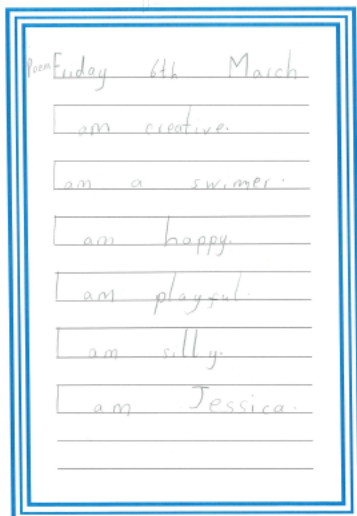 Poem Friday 6th March
I am creative.
I am a swimer.
I am happy.
I am playful.
I am silly.
I am Jessica.